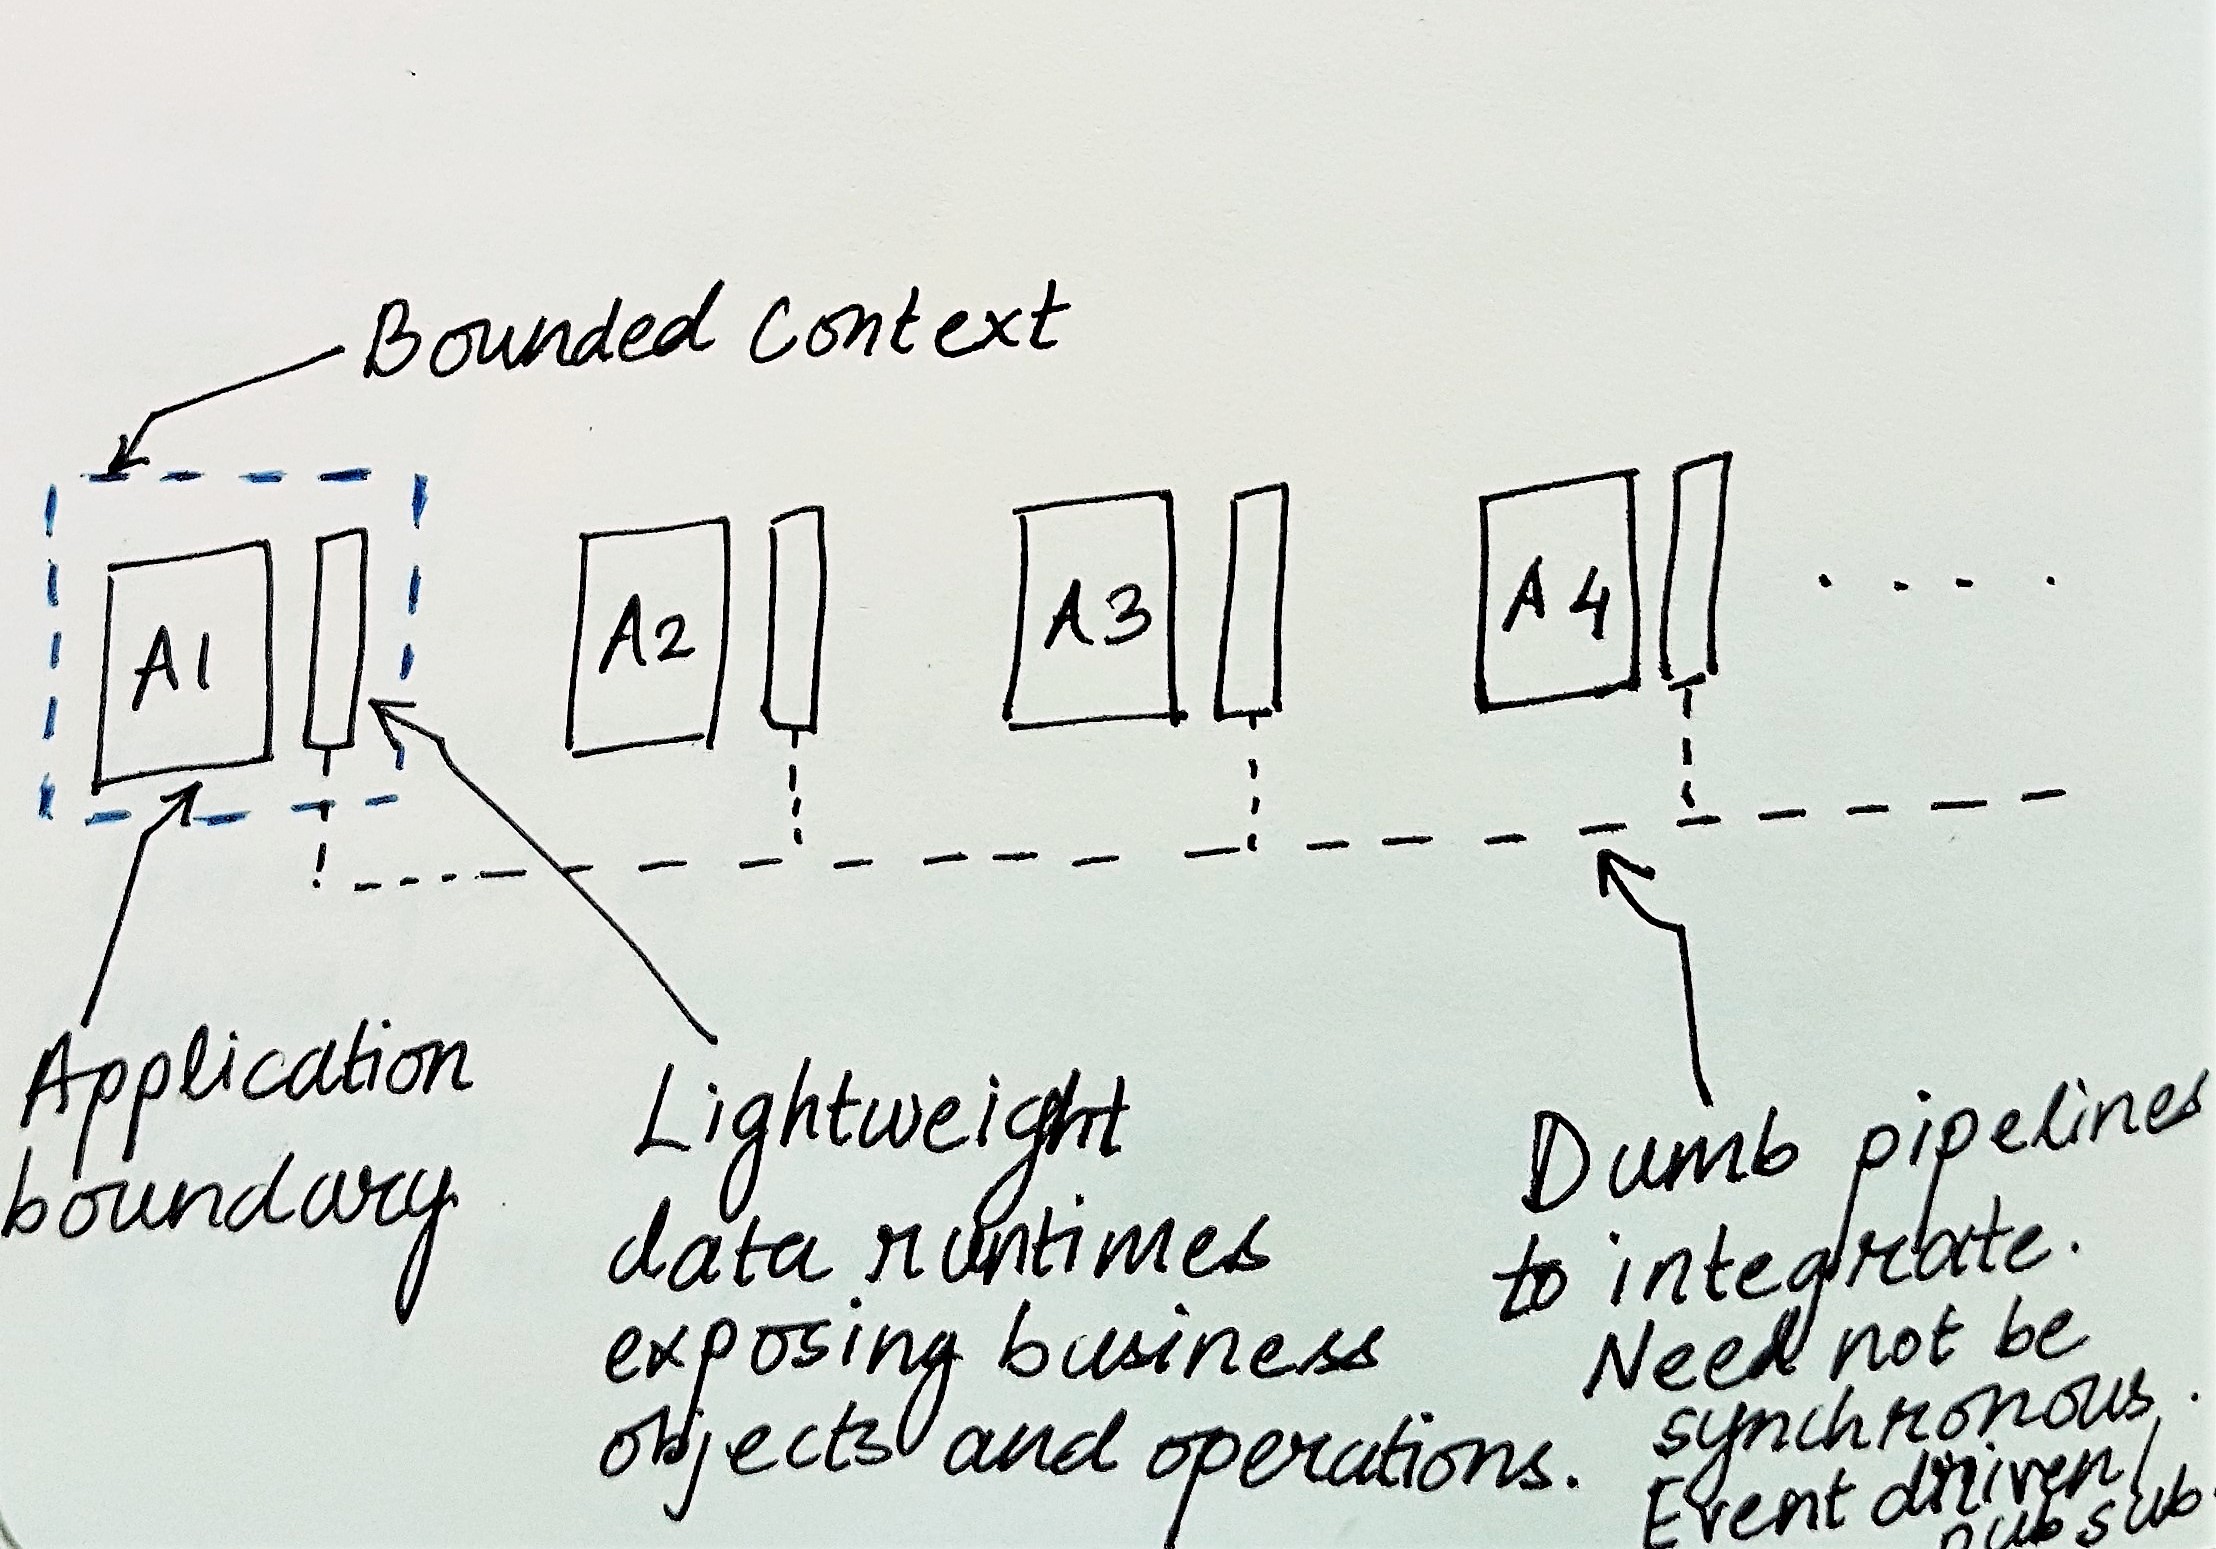 Bounded Context
A1
A2
A3
A4
Application
boundary
Lightweight
data runtimes
exposing business
objects and operations.
Dumb pipelines
to integrate.
Need not be
synchronous.
Event driven/
pubsub